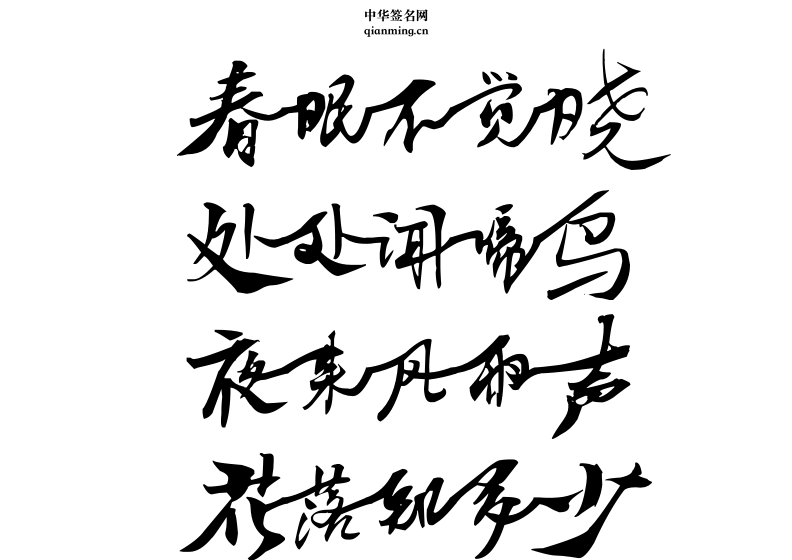 中华签名网
qianming.cn
春眠不觉晓
处处闻啼鸟
夜来风雨声
花落知多少